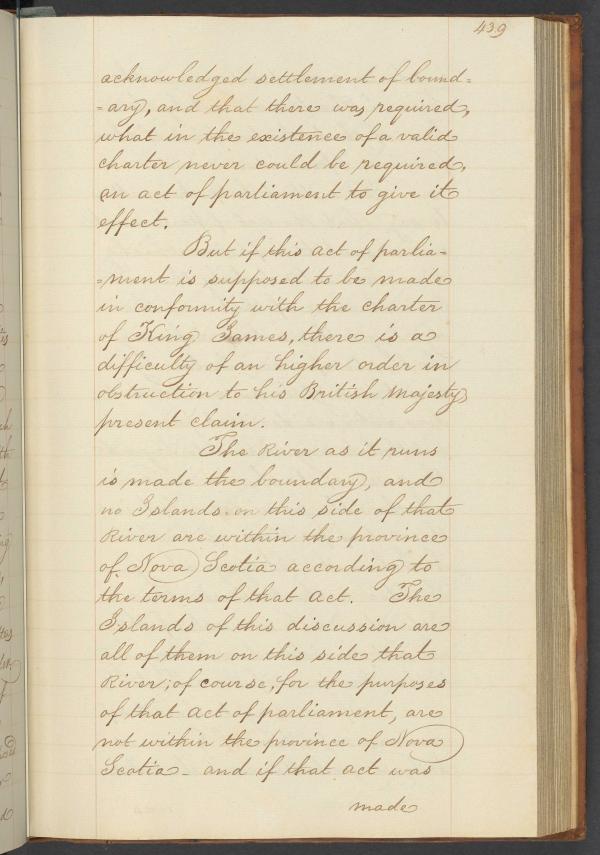 439
acknowledged settlement of bound=
=ary, and that there was required,
what in the existence of a valid
charter never could be required,
an act of parliament to give it
effect.
But if this act of parlia=
=ment is supposed to be made
in conformity with the charter
of King James, there is a
difficulty of an higher order in
obstruction to his British Majestys
present claim.
The River as it runs
is made the boundary, and
no Islands on this side of that
River are within the province
of Nova Scotia according to
the terms of that act. The
Islands of this discussion are
all of them on this side that
River; of course, for the purposes
of that act of parliament, are
not within the province of Nova
Scotia - and if that act was
made